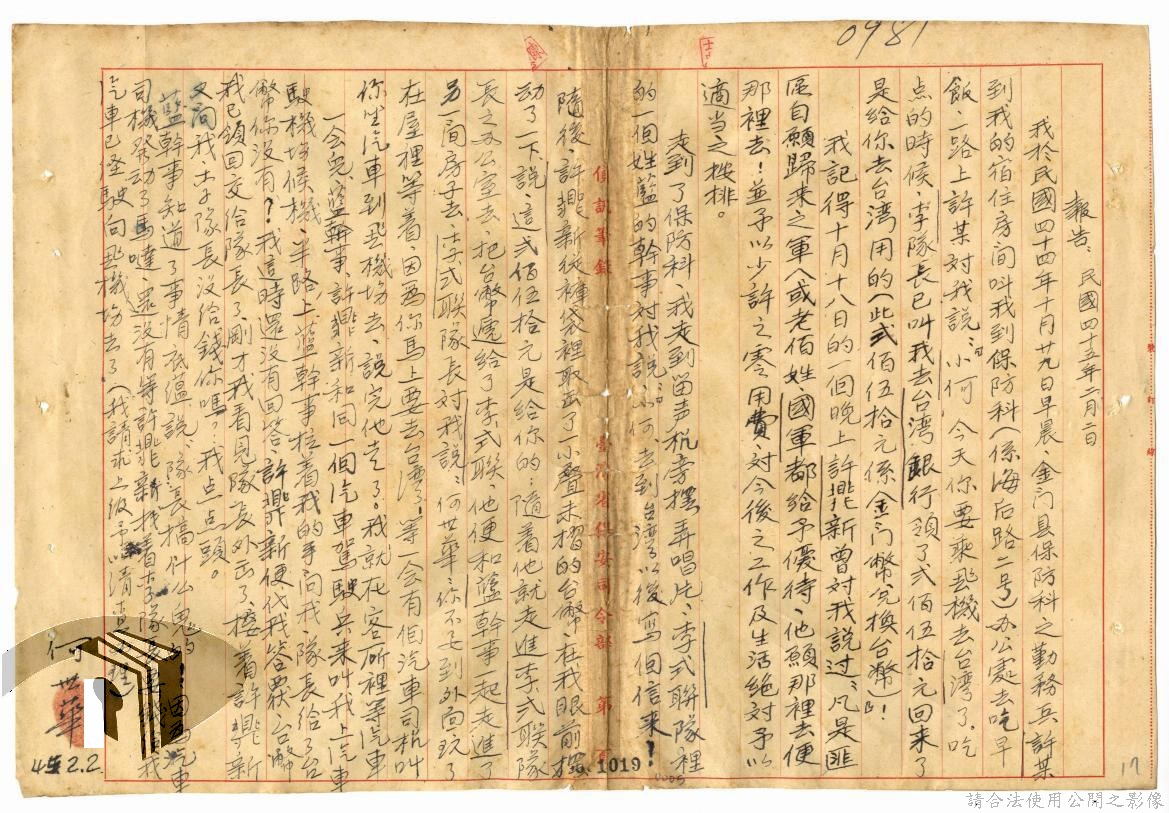 0981
報告、民國四十五年二月二日
我於民國四十四年十月廿九日早晨、金门县保防科之勤務兵許某
到我的宿住房间叫我到保防科(係海后路二号)办公處去吃早
飯、路上許某对我說：小何、今天你要乘飛機去台湾了、吃
点的時候、李隊長已叫我去台湾銀行領了弍佰伍拾元回来了
是给你去台湾用的(此弍佰伍拾元係金门幣兌换台幣)！
我記得十月十八日的一個晚上許兆新曾对我說过：凡是匪
區自願歸来之軍人或老佰姓國軍都给予優待、他願那裡去便
那裡去！並予以少許之零用費、对今後之工作及生活绝对予以
適当之按排。
走到了保防科、我走到留声机旁摆弄唱片、李式聯隊裡
的一個姓蓝的幹事对我說：小何、去到台湾以後寫個信来？
隨後、許兆新從褲袋裡取出了一小疊未摺的台幣、在我眼前摆
动了一下、說這弍佰伍拾元是给你的、隨着他就走進李式聯隊
長之办公室去、把台幣遞给了李式聯他便和蓝幹事一起走進了
另一间房子去、李式聯隊長对我說：何世華：你不要到外面玩了
在屋裡等着因為你馬上要去台湾！等一会有個汽車司机叫
你坐汽車到飛機場去、說完他走了。我就在客所裡等汽車
一会兒、蓝幹事、許兆新和同一個汽車駕駛兵来叫我上汽車
駛機場候機、半路上蓝幹事拉着我的手问我、隊長给了台
幣你没有？我這時還没有回答、許兆新便代我答覆、台幣
我已領回交给隊長了、剛才我看見隊長外出了、接着許兆新
又问我：李隊長没给錢你嗎？我点点頭。
蓝幹事知道了事情
司機發动了馬噠還没有等許兆新找着李隊長
汽車已經駛向飛機場去了(我請求上级予以清查
何世華
45 2.2
偵訊筆錄
臺灣省保安司令部
第
頁
1019
0005
17
裝訂線
請合法使用公開之影像